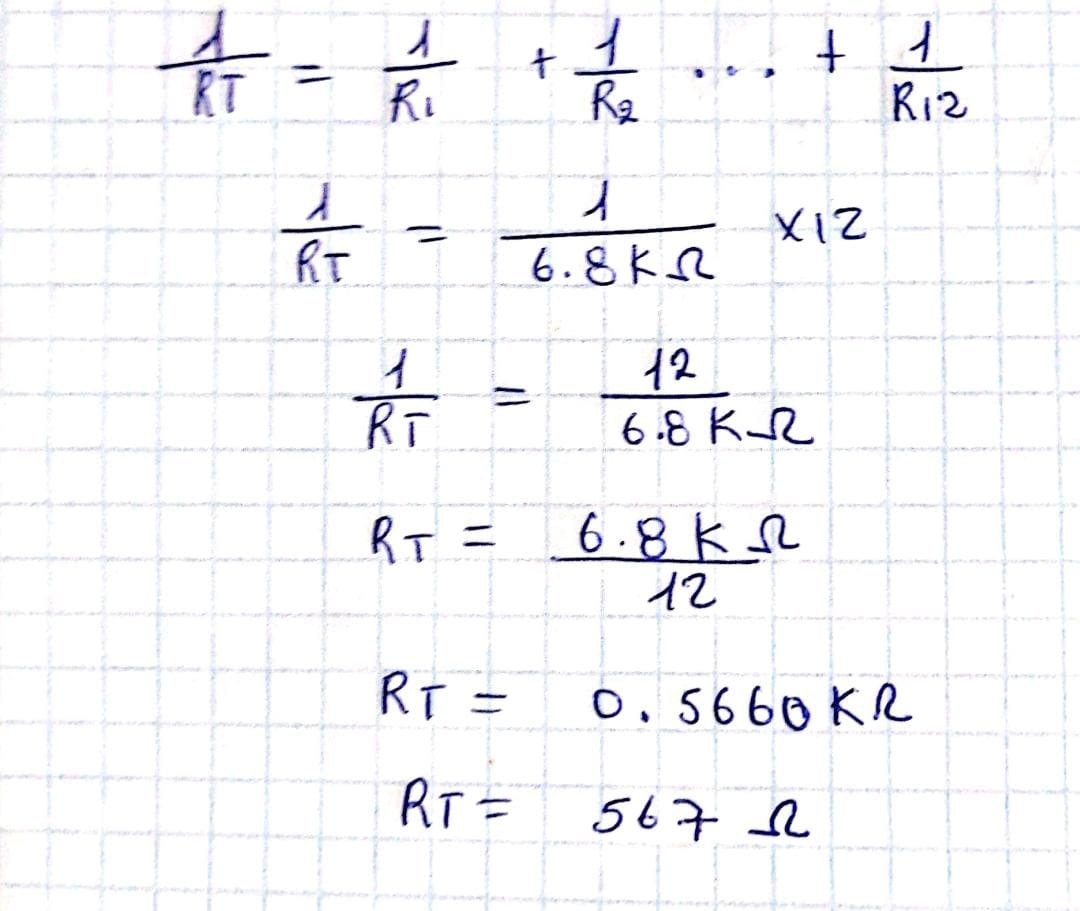 1/RT = 1/R1 + 1/R2 ... + 1/R12
1/RT = 1/6.8KΩ x12
1/RT = 12/6.8KΩ
RT = 6.8KΩ/12
RT = 0.5660KΩ
RT = 567 Ω